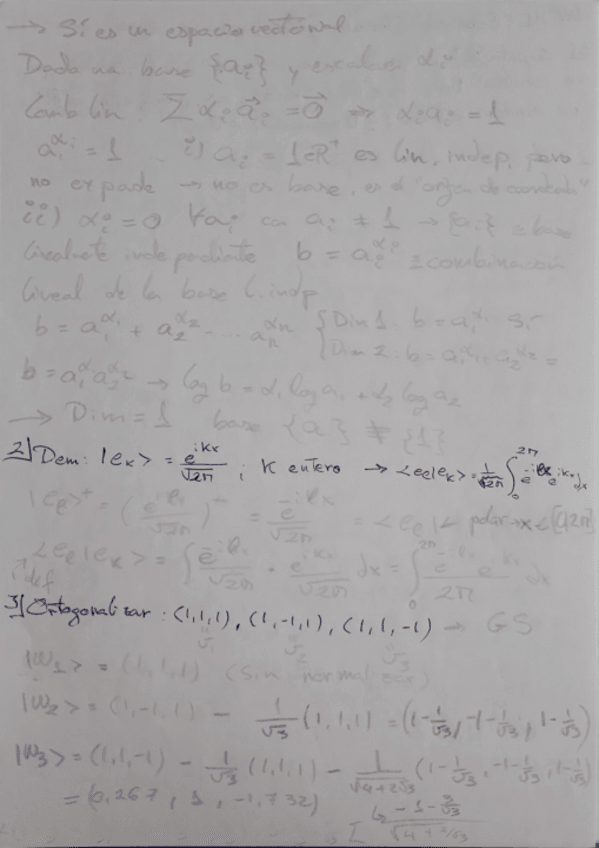 → Sí es un espacio vectorial
Dada una base {a_i} y escalares α_i
Comb lin: Σ α_i a⃗_i = 0⃗ ⇒ α_i a_i = 1
a_i^{α_i} = 1 i) a_i = 1 ∈ R⁺ es lin. indep. pero
no expade → no es base, es el "origen de coordenadas"
ii) α_i = 0 ∀a_i con a_i ≠ 1 → {a_i} ≡ base
linealmente independiente b = a_i^{α_i} ≡ combinación
lineal de la base l. indp
b = a_1^{α_1} + a_2^{α_2} ... a_n^{α_n} { Dim 1: b = a_1^{α_1}
Dim 2: b = a_1^{α_1} a_2^{α_2} =
b = a_1^{α_1} a_2^{α_2} → log b = α_1 log a_1 + α_2 log a_2
→ Dim = 1 base {a} ≠ {1}
2] Dem: |e_k> = e^{ikx}/√2π ; K entero → <e_l|e_k> = 1/√2π ∫_0^{2π} e^{-ilx} e^{ikx} dx
|e_l>⁺ = (e^{il}/√2π)⁺ = e^{-il}/√2π = <e_l| polar → x ∈ [0,2π]
<e_l|e_k> = ∫ e^{-il}/√2π · e^{ikx}/√2π dx = ∫_0^{2π} e^{-il} e^{ik}/2π dx
def
3] Ortogonalizar: (1,1,1), (1,-1,1), (1,1,-1) → GS
v_1 v_2 v_3
|w_1> = (1,1,1) (sin normalizar)
|w_2> = (1,-1,1) - 1/√3 (1,1,1) = (1-1/√3, -1-1/√3, 1-1/√3)
|w_3> = (1,1,-1) - 1/√3 (1,1,1) - 1/√(4+2√3) (1-1/√3, -1-1/√3, 1-1/√3)
= (0,267, 1, -1,732)
-1-2/√3
√(4+2/√3)